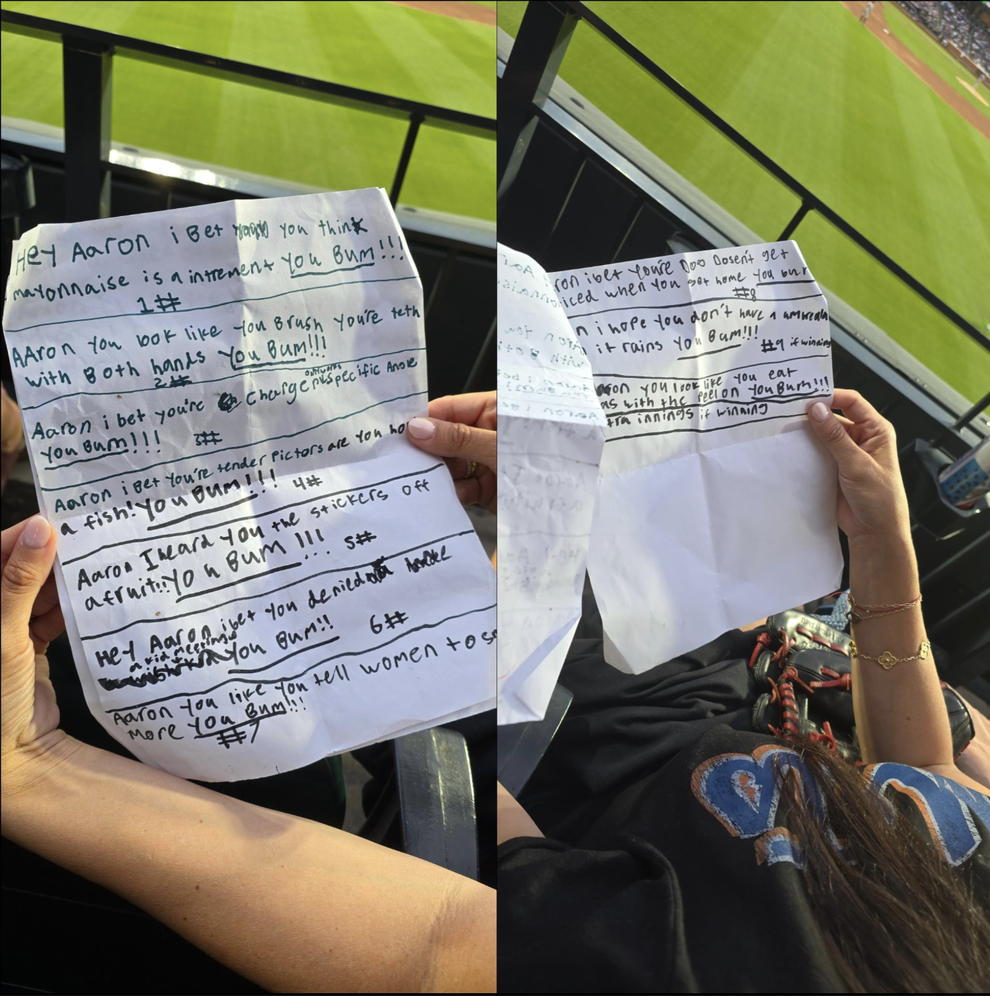 Hey Aaron i Bet you think
mayonnaise is a intrement You Bum!!!
1#
AAron You look like You Brush You're teth
with Both hands You Bum!!!
2#
Aaron i bet you're Charge specific Ande
You Bum!!! 3#
Aaron i Bet You're tender Pictors are you ho
a fish! You Bum!!! 4#
Aaron I heard You the stickers off
a fruit!! You Bum!!! 5#
Hey Aaron i bet You denied
a kid meetings You Bum!! 6#
Aaron You like You tell women to s
more You Bum!!!
#7
ron i bet You're Dog Dosen't get
iced when You get home You bu
#8
n i hope You don't have a
it rains You Bum!!! #9 if winning
ron You look like You eat
as with the Peel on You Bum!!!
tra innings if winning